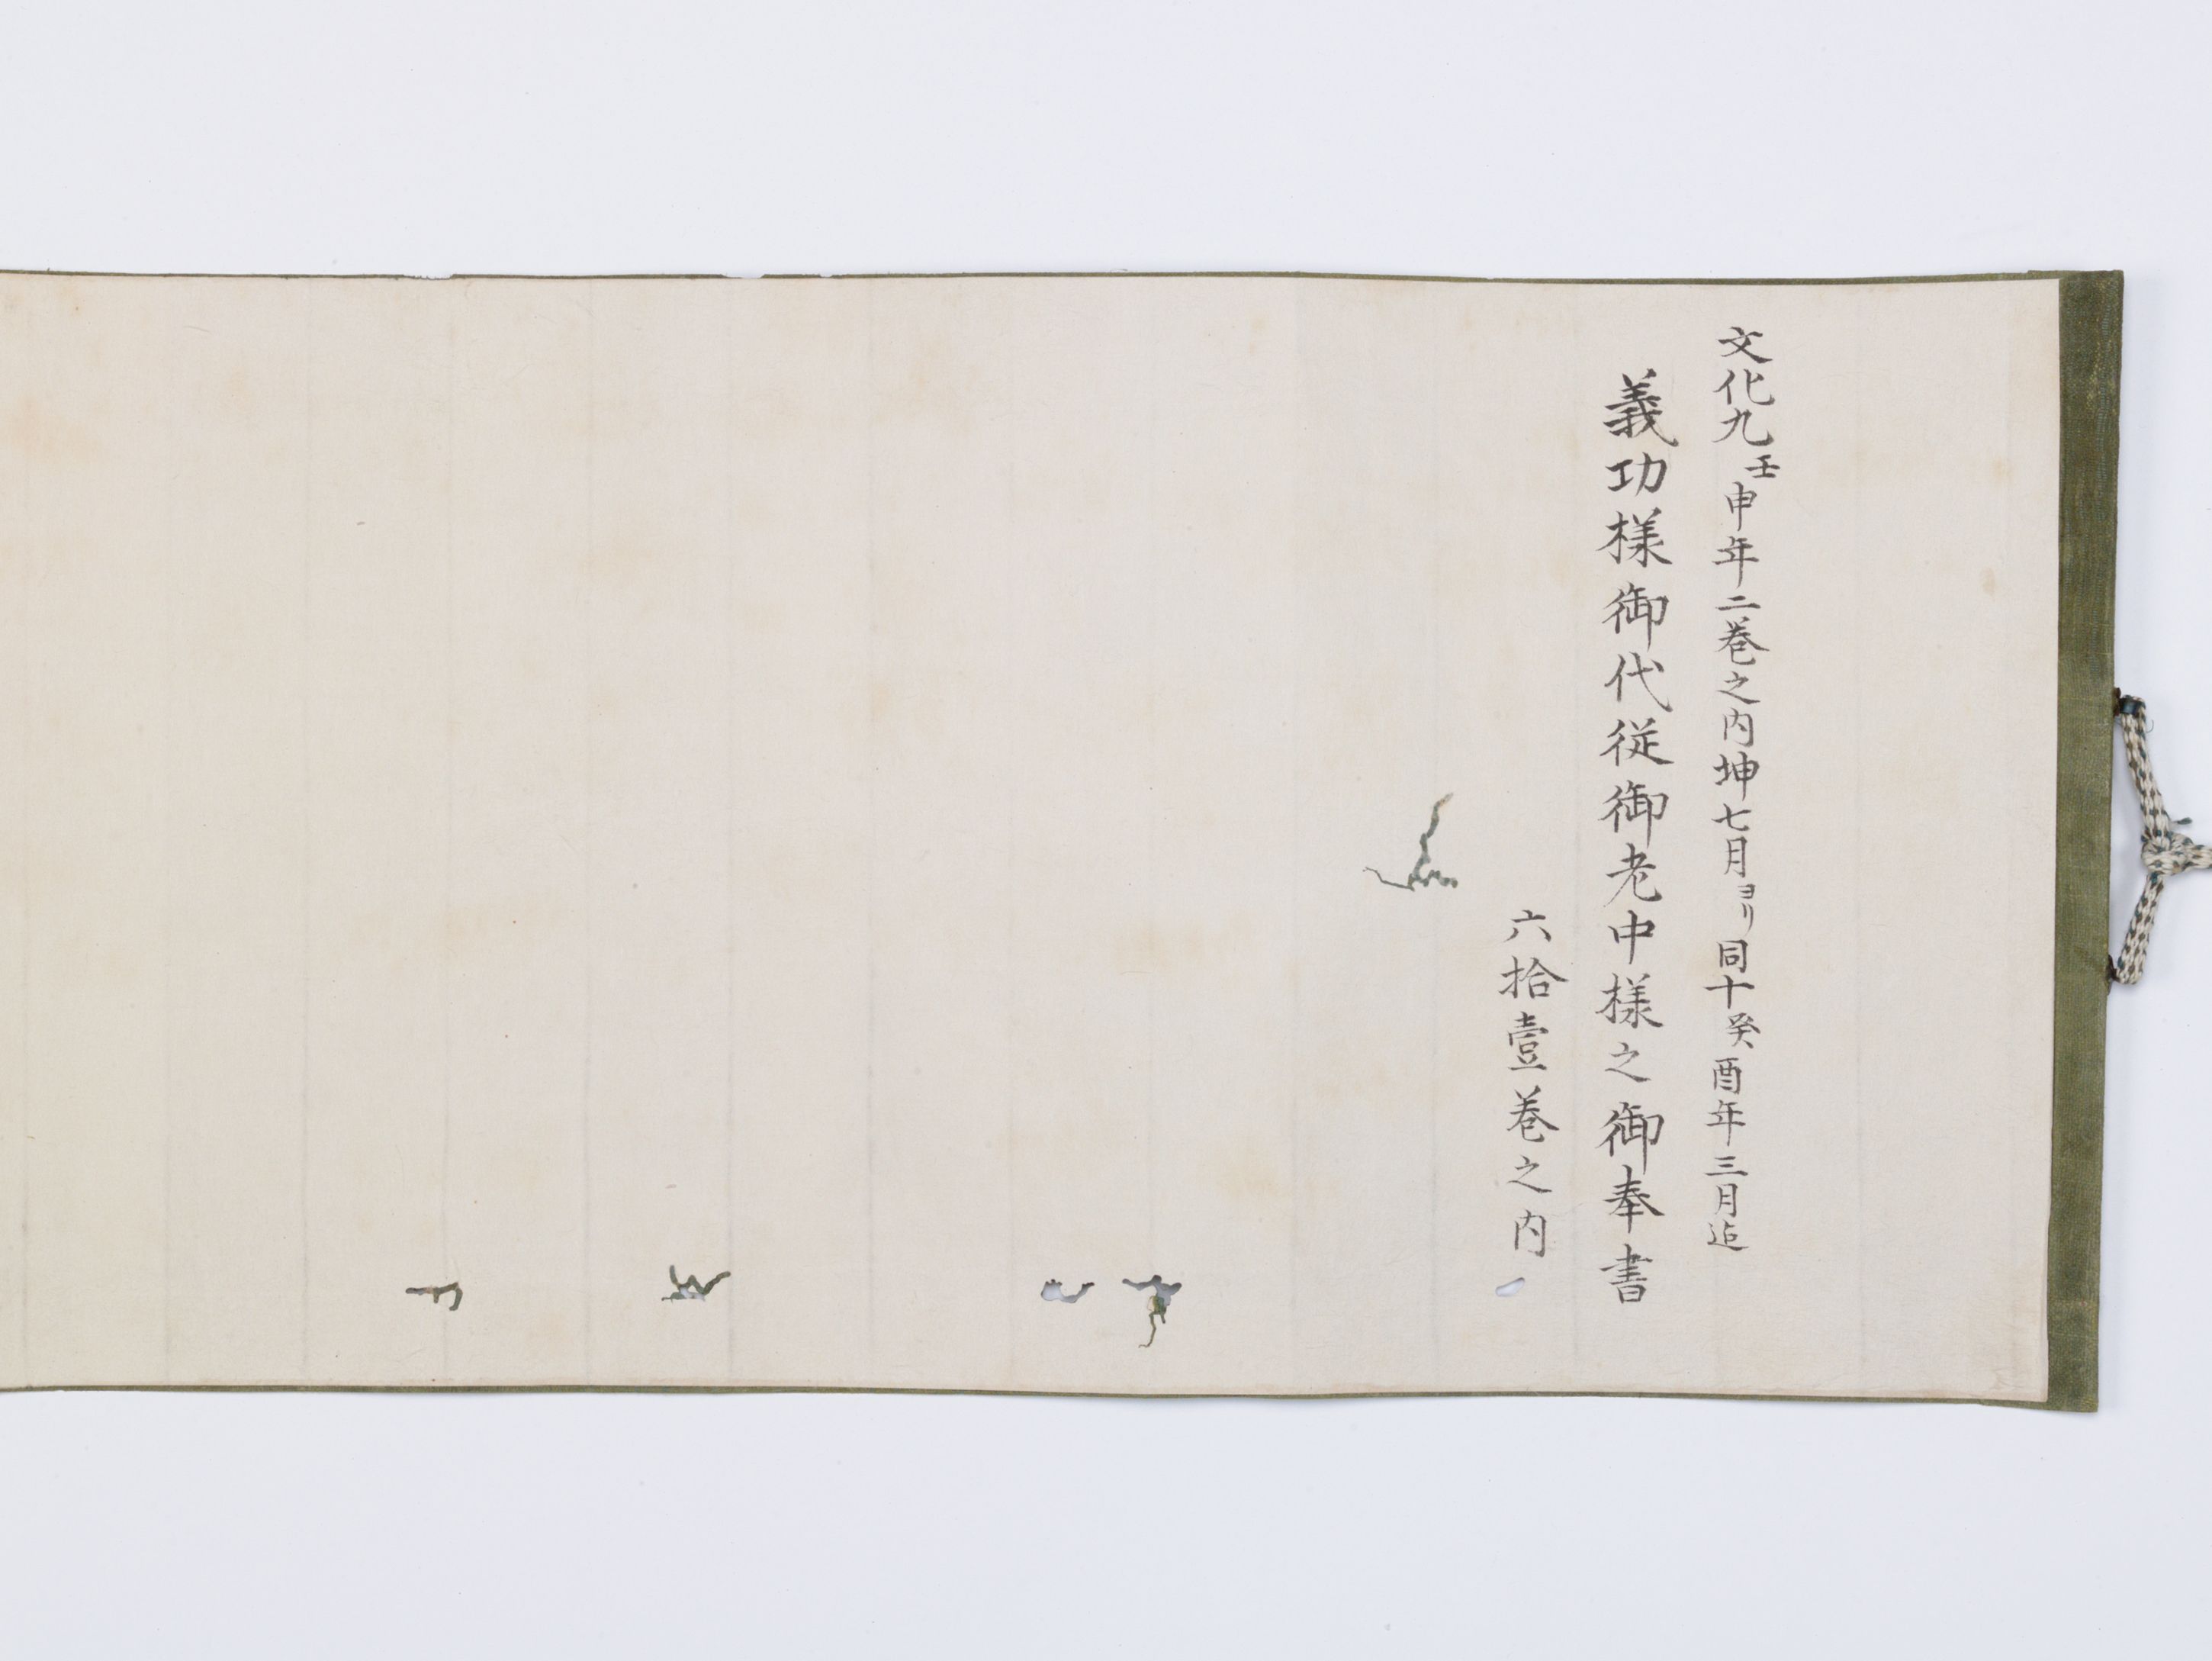 文化九壬申年二巻之内坤七月ヨリ同十癸酉年三月迠
義功様御代従御老中様之御奉書
六拾壹巻之内